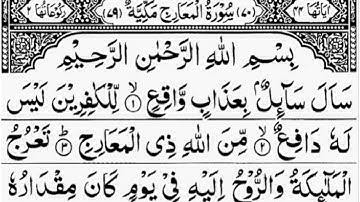 اٰيَاتُهَا ٤٤ (٧٠) سُوْرَةُ الْمَعَارِجِ مَكِّيَّةٌ (٧٩) رُكُوْعَاتُهَا ٢
بِسْمِ اللّٰهِ الرَّحْمٰنِ الرَّحِيْمِ
سَاَلَ سَآئِلٌۢ بِعَذَابٍ وَّاقِعٍ ۙ﴿١﴾ لِّلْكٰفِرِيْنَ لَيْسَ
لَهٗ دَافِعٌ ۙ﴿٢﴾ مِّنَ اللّٰهِ ذِي الْمَعَارِجِ ؕ﴿٣﴾ تَعْرُجُ
الْمَلٰٓئِكَةُ وَالرُّوْحُ اِلَيْهِ فِيْ يَوْمٍ كَانَ مِقْدَارُهٗ